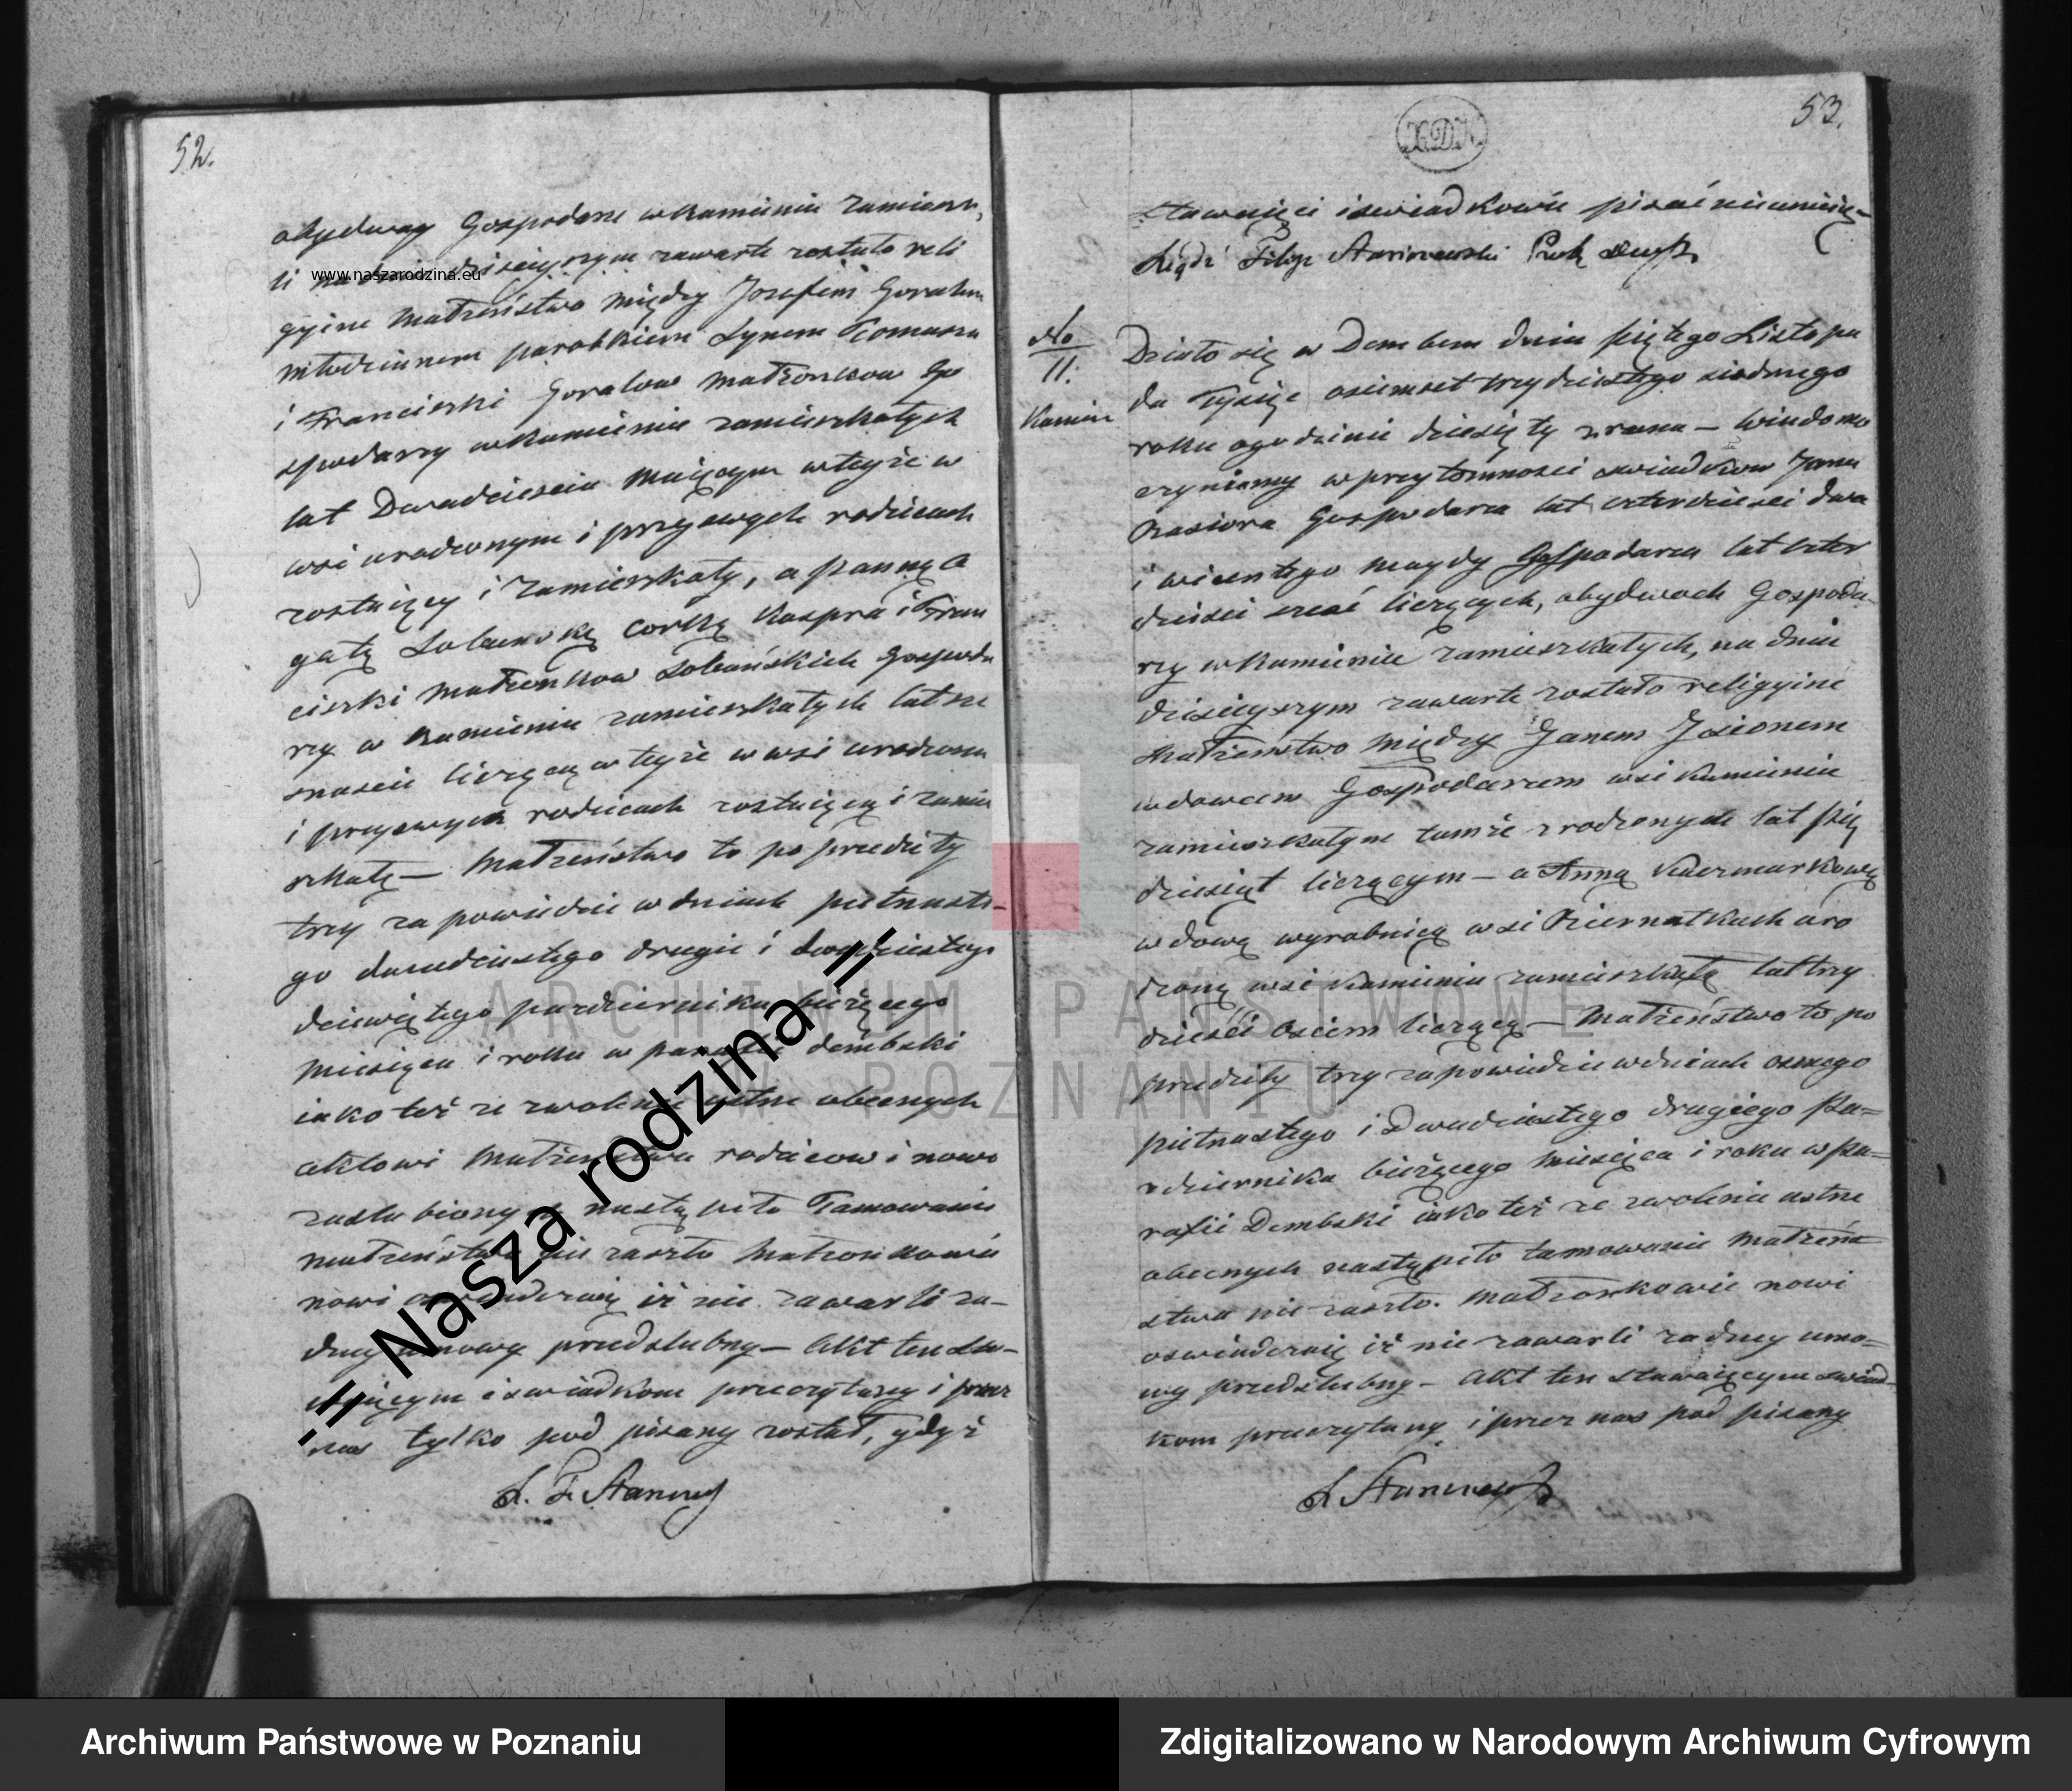 52.
obydway Gospodarze w Kamieniu zamieszka
li na dniu dzisieyszym zawarte zostało reli
gyine Małżeństwo między Jozefem Goralem
młodzianem parobkiem Synem Tomasza
i Franciszki Goralow Małżonkow Go
spodarzy w Kamieniu zamieszkałych
lat Dwadzieścia maiącym w teyże w
wsi urodzonym i przy swych rodzicach
zostaiący i zamieszkały, a panną A
gatą corką Kaspra i Fran
ciszki Małżonkow Gospoda
rzy w Kamieniu zamieszkałych lat sze
snaście liczącą w teyże w wsi urodzona
i przy swych rodzicach zostaiącą i zamie
szkałą — Małżeństwo to poprzedziły
trzy zapowiedzie w dniach pietnaste-
go dwudziestego drugie i dwudziestego
dziewiątego pazdziernika bieżącego
Miesiąca i roku w parafii dembski
iako też ze zwolenie ustne obecnych
aktowi Małżeństwa rodzicow i nowo
zaslubionych nastąpiło Tamowanie
małżeństwa nie zaszło Małżonkowie
nowi oswiadczaią iż nie zawarli ża-
dney umowy przedslubny — Akt ten sta-
waiącym i swiadkom przeczytany i przez
nas tylko pod pisany został, gdyż
53.
stawaiący i swiadkowie pisać nieumieią-
Ksiądz Filip
No
11.
Kamień
Działo się w Dembem dnia piątego Listopa
da Tysiąc osiemset trzydziestego siodmego
roku o godzinie dziesiąty z rana — Wiadomo
czyniemy w przytomności swiadkow Jana
Gospodarza lat czterdzieści dwa
i wicentego Maydy Gospodarza lat czter
dzieści sześć liczących, obydwoch Gospoda-
rzy w Kamieniu zamieszkałych, na dniu
dzisieyszym zawarte zostało religyine
Małżeństwo między Janem Jesionem
wdowcem Gospodarzem wsi Kamieniu
zamieszkałym tamże zrodzonych lat pię
dziesiąt liczącym — a Anną Kaczmarkową
wdową wyrobnicą wsi Biernatkach uro
dzoną wsi Kamieniu zamieszkałą lat trzy
dzieści Osiem liczącą — Małżeństwo to po
przedziły trzy zapowiedzie w dniach osmego
pietnastego i Dwudziestego drugiego Pa=
zdziernika bieżącego Miesiąca i roku w Pa=
rafii Dembski iako też ze zwolenie ustne
obecnych nastąpiło tamowanie Małżeń=
stwa nie zaszło. Małżonkowie nowi
oswiadczaią iż nie zawarli żadney umo=
wy przedslubny — Akt ten stawaiącym swiad-
kom przeczytany i przez nas pod pisany
www.naszarodzina.eu
-= Nasza rodzina =-
ARCHIWUM PAŃSTWOWE
W POZNANIU
Archiwum Państwowe w Poznaniu
Zdigitalizowano w Narodowym Archiwum Cyfrowym